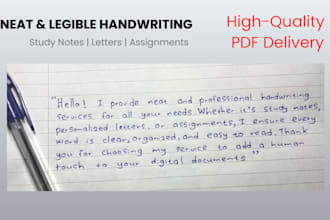 NEAT & LEGIBLE HANDWRITING
Study Notes | Letters | Assignments
High-Quality
PDF Delivery
"Hello! I provide neat and professional handwriting
services for all your needs. Whether it's study notes,
personalized letters, or assignments, I ensure every
word is clear, organized, and easy to read. Thank
you for choosing my service to add a human
touch to your digital documents"